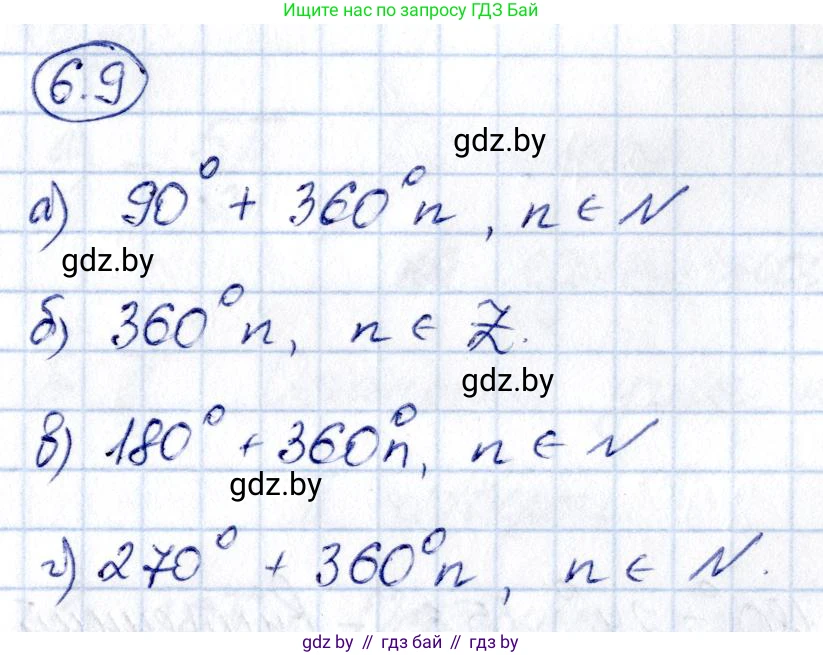 Ищите нас по запросу ГДЗ Бай
6.9
gdz.by
а) 90° + 360°n, n ∈ N
gdz.by
б) 360°n, n ∈ Z.
gdz.by
в) 180° + 360°n, n ∈ N
gdz.by
г) 270° + 360°n, n ∈ N.
gdz.by // гдз бай // gdz.by